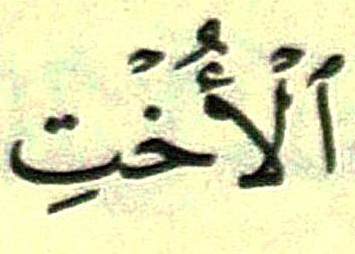 ٱلْأُخْتِ